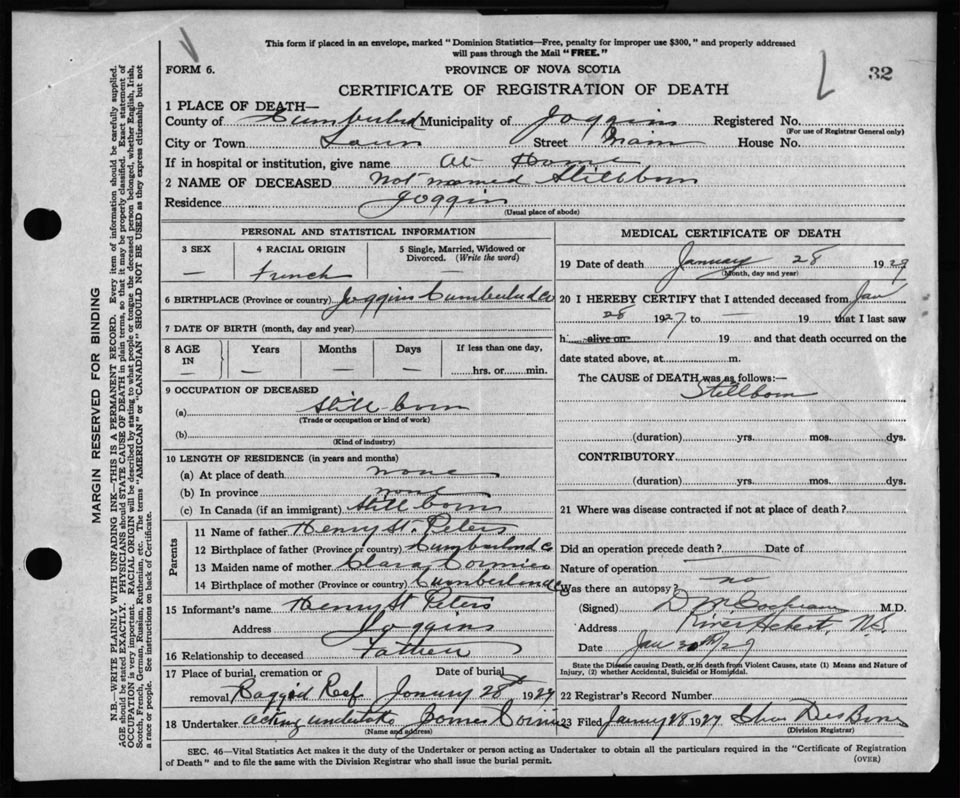 This form if placed in an envelope, marked "Dominion Statistics—Free, penalty for improper use $300," and properly addressed
will pass through the Mail "FREE."
FORM 6.
PROVINCE OF NOVA SCOTIA
32
CERTIFICATE OF REGISTRATION OF DEATH
1 PLACE OF DEATH—
County of Cumberland Municipality of Joggins Registered No.
(For use of Registrar General only)
City or Town Town Street Main House No.
If in hospital or institution, give name At Home
2 NAME OF DECEASED Not named Stillborn
Residence Joggins
(Usual place of abode)
PERSONAL AND STATISTICAL INFORMATION
3 SEX
4 RACIAL ORIGIN
5 Single, Married, Widowed or Divorced. (Write the word)
— French —
6 BIRTHPLACE (Province or country) Joggins Cumberland Co
7 DATE OF BIRTH (month, day and year)
8 AGE IN — Years — Months — Days — If less than one day, hrs. or min.
9 OCCUPATION OF DECEASED
(a) Still born
(Trade or occupation or kind of work)
(b)
(Kind of industry)
10 LENGTH OF RESIDENCE (in years and months)
(a) At place of death none
(b) In province none
(c) In Canada (if an immigrant) Still born
Parents
11 Name of father Henry St. Peters
12 Birthplace of father (Province or country) Cumberland Co
13 Maiden name of mother Clara Cormier
14 Birthplace of mother (Province or country) Cumberland Co
15 Informant's name Henry St Peters
Address Joggins
16 Relationship to deceased Father
17 Place of burial, cremation or removal Ragged Reef Date of burial January 28th 1927
18 Undertaker acting undertaker James
(Name and address)
MEDICAL CERTIFICATE OF DEATH
19 Date of death January 28 1927
(Month, day and year)
20 I HEREBY CERTIFY that I attended deceased from Jan
28 1927 to — 19 that I last saw
h alive on 19 and that death occurred on the
date stated above, at m.
The CAUSE of DEATH was as follows:—
Stillborn
(duration) yrs. mos. dys.
CONTRIBUTORY
(duration) yrs. mos. dys.
21 Where was disease contracted if not at place of death?
Did an operation precede death? Date of
Nature of operation
Was there an autopsy? no
(Signed) D M Cochrane M.D.
Address River Hebert, N.S.
Date
State the Disease causing Death, or in death from Violent Causes, state (1) Means and Nature of
Injury, (2) whether Accidental, Suicidal or Homicidal.
22 Registrar's Record Number
23 Filed January 28 1927
(Division Registrar)
SEC. 46—Vital Statistics Act makes it the duty of the Undertaker or person acting as Undertaker to obtain all the particulars required in the "Certificate of Registration
of Death" and to file the same with the Division Registrar who shall issue the burial permit.
(OVER)
MARGIN RESERVED FOR BINDING
N.B.—WRITE PLAINLY WITH UNFADING INK—THIS IS A PERMANENT RECORD. Every item of information should be carefully supplied.
AGE should be stated EXACTLY. PHYSICIANS should STATE CAUSE OF DEATH in plain terms, so that it may be properly classified. Exact statement of
OCCUPATION is very important. RACIAL ORIGIN will be described by stating to what people or tongue the deceased person belonged, whether English, Irish,
Scotch, French, German, Russian, Ruthenian, etc. The terms "AMERICAN" or "CANADIAN" SHOULD NOT BE USED as they express citizenship but not
a race or people. See instructions on back of Certificate.